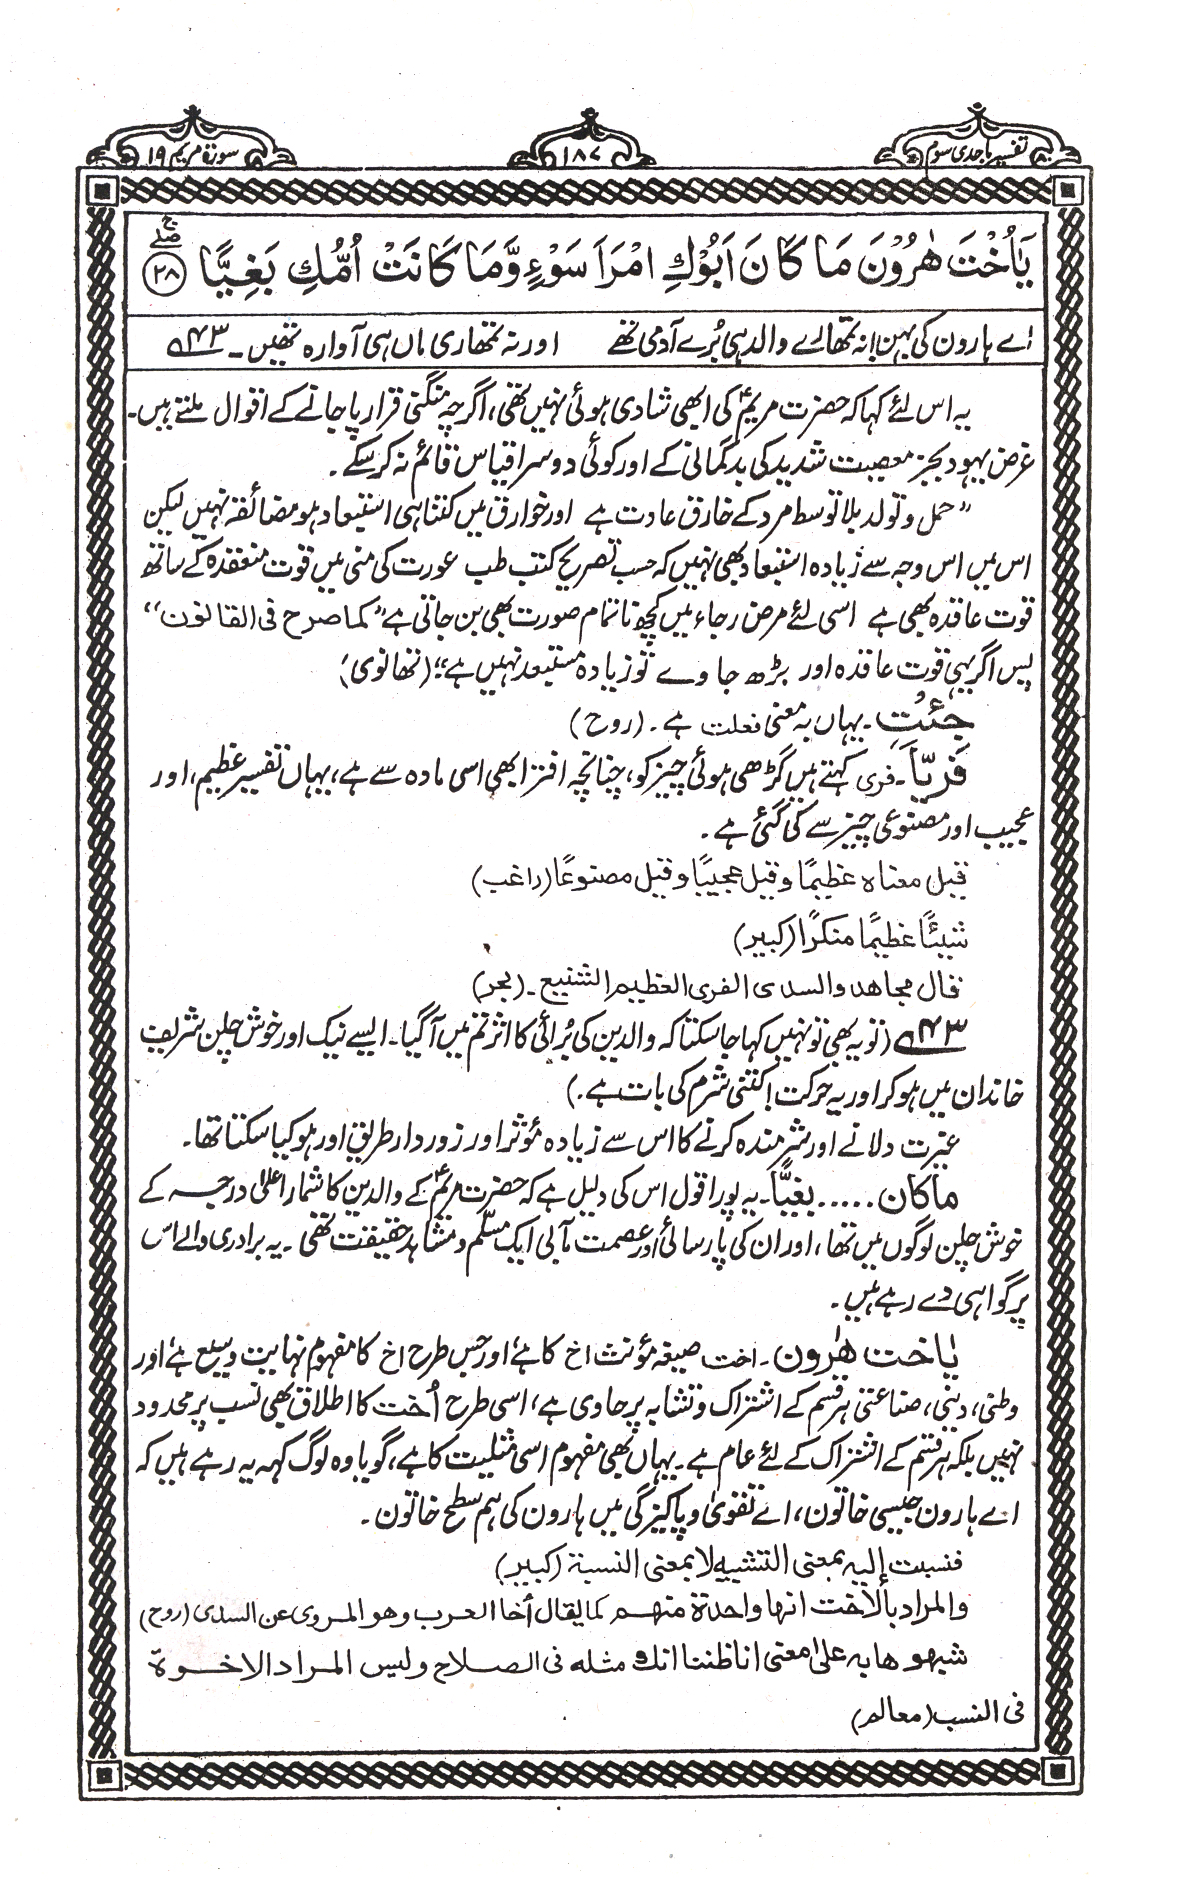 تفسیر ماجدی سوم
۱۸۷
سورۃ مریم ۱۹
يٰٓاُخْتَ هٰرُوْنَ مَا كَانَ اَبُوْكِ امْرَاَ سَوْءٍ وَّمَا كَانَتْ اُمُّكِ بَغِيًّا ۲۸
اے ہارون کی بہن! نہ تمھارے والد ہی بُرے آدمی تھے اور نہ تمھاری ماں ہی آوارہ تھیں۔ ۴۳
یہ اس لئے کہا کہ حضرت مریمؑ کی ابھی شادی ہوئی نہیں تھی، اگرچہ منگنی قرار پاجانے کے اقوال ملتے ہیں۔
غرض یہود بجز معصیت شدید کی بدگمانی کے اور کوئی دوسرا قیاس قائم نہ کرسکے۔
”حمل و تولد بلا توسط مرد کے خارق عادت ہے اور خوارق میں کتنا ہی استبعاد ہو مضائقہ نہیں لیکن
اس میں اس وجہ سے زیادہ استبعاد بھی نہیں کہ حسب تصریح کتب طب عورت کی منی میں قوت منعقدہ کے ساتھ
قوت عاقدہ بھی ہے اسی لئے مرض رجاء میں کچھ ناتمام صورت بھی بن جاتی ہے ”کما صرح فی القانون“
پس اگر یہی قوت عاقدہ اور بڑھ جاوے تو زیادہ مستبعد نہیں ہے“ (تھانوی)
جِئْتِ۔ یہاں بہ معنی فعلت ہے۔ (روح)
فَرِيًّا۔ فری کہتے ہیں گڑھی ہوئی چیز کو، چنانچہ افترا بھی اسی مادہ سے ہے، یہاں تفسیر عظیم، اور
عجیب اور مصنوعی چیز سے کی گئی ہے۔
قیل معناہ عظیمًا وقیل عجیبًا وقیل مصنوعًا (راغب)
شیئًا عظیمًا منکرًا (کبیر)
قال مجاھد والسدی الفری العظیم الشنیع۔ (بحر)
۴۳ (تو یہ بھی تو نہیں کہا جاسکتا کہ والدین کی بُرائی کا اثر تم میں آگیا۔ ایسے نیک اور خوش چلن شریف
خاندان میں ہوکر اور یہ حرکت! کتنی شرم کی بات ہے۔)
غیرت دلانے اور شرمندہ کرنے کا اس سے زیادہ مؤثر اور زوردار طریق اور ہو کیا سکتا تھا۔
ماکان ..... بغیًّا۔ یہ پورا قول اس کی دلیل ہے کہ حضرت مریمؑ کے والدین کا شمار اعلیٰ درجہ کے
خوش چلن لوگوں میں تھا، اور ان کی پارسائی اور عصمت مآبی ایک مسلّم و مشاہد حقیقت تھی۔ یہ برادری والے اس
پر گواہی دے رہے ہیں۔
یٰاخت ھٰرون۔ اخت صیغہ مؤنث اخ کا ہے اور جس طرح اخ کا مفہوم نہایت وسیع ہے، اور
وطنی، دینی، صناعتی ہر قسم کے اشتراک و تشابہ پر حاوی ہے، اسی طرح اُخت کا اطلاق بھی نسب پر محدود
نہیں بلکہ ہر قسم کے اشتراک کے لئے عام ہے۔ یہاں بھی مفہوم اسی مثلیت کا ہے، گویا وہ لوگ کہہ یہ رہے ہیں کہ
اے ہارون جیسی خاتون، اے تقویٰ و پاکیزگی میں ہارون کی ہم سطح خاتون۔
فنسبت إلیہ بمعنی التشبیہ لا بمعنی النسبة (کبیر)
والمراد بالاخت انھا واحدة منھم کما یقال أخا العرب وھو المروی عن السدی (روح)
شبھوھا بہ علیٰ معنی انا ظننا انک مثلہ فی الصلاح ولیس المراد الاخوة
فی النسب (معالم)